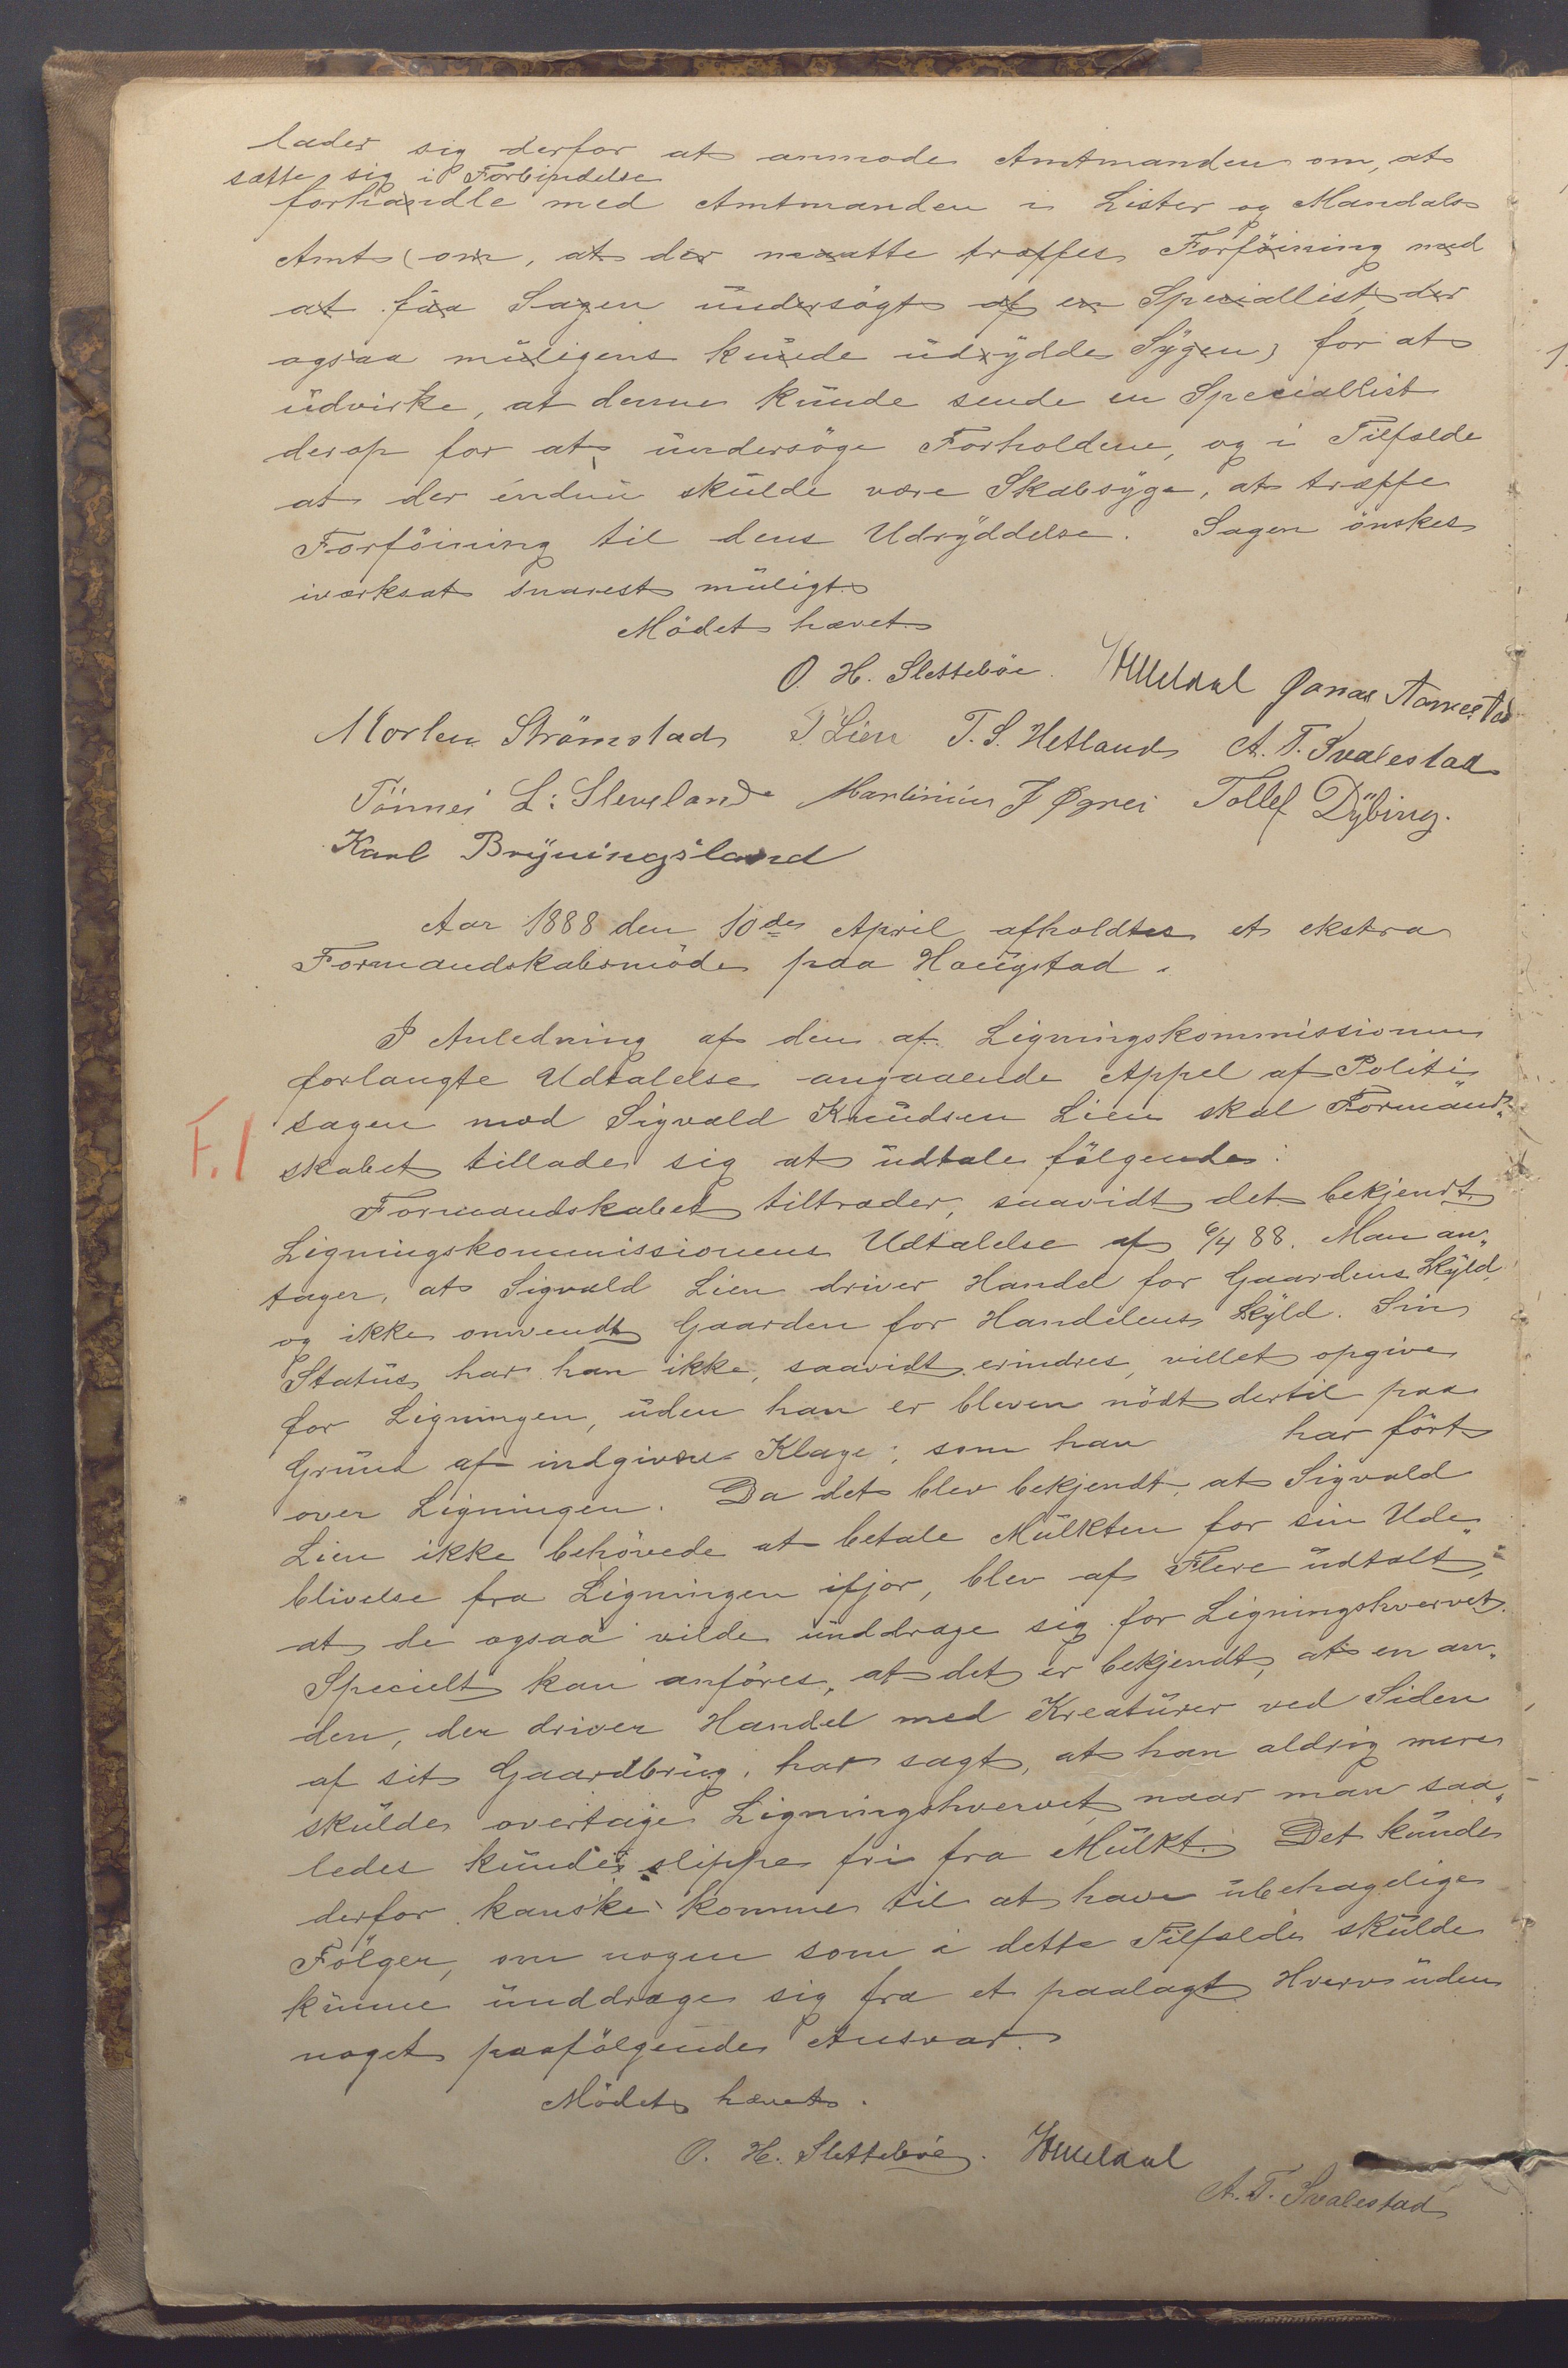 lader sig derfor at anmode Amtmanden om, at
sætte sig i Forbindelse
forhandle med Amtmanden i Lister og Mandals
Amt (om, at der maatte træffes Forföining med
at faa Sagen undersögt af en Speciallist, der
ogsaa muligens kunde udrydde Sygen) for at
udvirke, at denne kunde sende en Speciallist
derop for at undersöge Forholdene, og i Tilfælde
at der endnu skulde være Skabsyge, at træffe
Forföining til dens Udryddelse. Sagen önskes
iværksat snarest muligt.
Mödet hævet
O. H. Sletteböe. Jonas Aamestad
Morten Strömstad T. Lien T. S. Hetland A. T. Svalestad
Tönnes L. Sleveland Martinius J Øgrei Tollef Dybing.
Karl Bryningsland
Aar 1888 den 10de April afholdtes et ekstra
Formandskabsmöde paa Haugstad.
I Anledning af den af Ligningskommissionen
forlangte Udtalelse angaaende Appel af Politi
F.1 sagen mod Sigvald Knudsen Lien skal Formand„
skabet tillade sig at udtale fölgende:
Formandskabet tiltræder, saavidt det bekjendt
Ligningskommissionens Udtalelse af 6/4 88. Man an„
tager, at Sigvald Lien driver Handel for Gaardens Skyld
og ikke omvendt Gaarden for Handelens Skyld. Sin
Status har han ikke, saavidt erindres, villet opgive
for Ligningen, uden han er bleven nödt dertil paa
Grund af indgiven Klage; som han har fört
over Ligningen. Da det blev bekjendt, at Sigvald
Lien ikke behövede at betale Mulkten for sin Ude„
blivelse fra Ligningen ifjor, blev af Flere udtalt,
at de ogsaa vilde unddrage sig for Ligningshvervet.
Specielt kan anföres, at det er bekjendt, at en an„
den, der driver Handel med Kreaturer ved Siden
af sit Gaardbrug, har sagt, at han aldrig mere
skulde overtage Ligningshvervet, naar man saa„
ledes kunde slippe fri fra Mulkt. Det kunde
derfor kanske komme til at have ubehagelige
Fölger, om nogen som i dette Tilfælde skulde
kunne unddrage sig fra et paalagt Hverv uden
noget paafölgende Ansvar.
Mödet hævet.
O. H. Sletteböe.
A. T. Svalestad